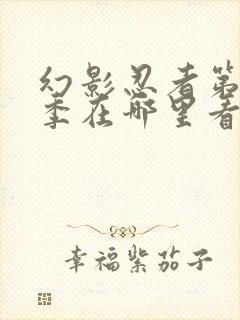 幻影忍者第
季在哪里看
幸福紫茄子